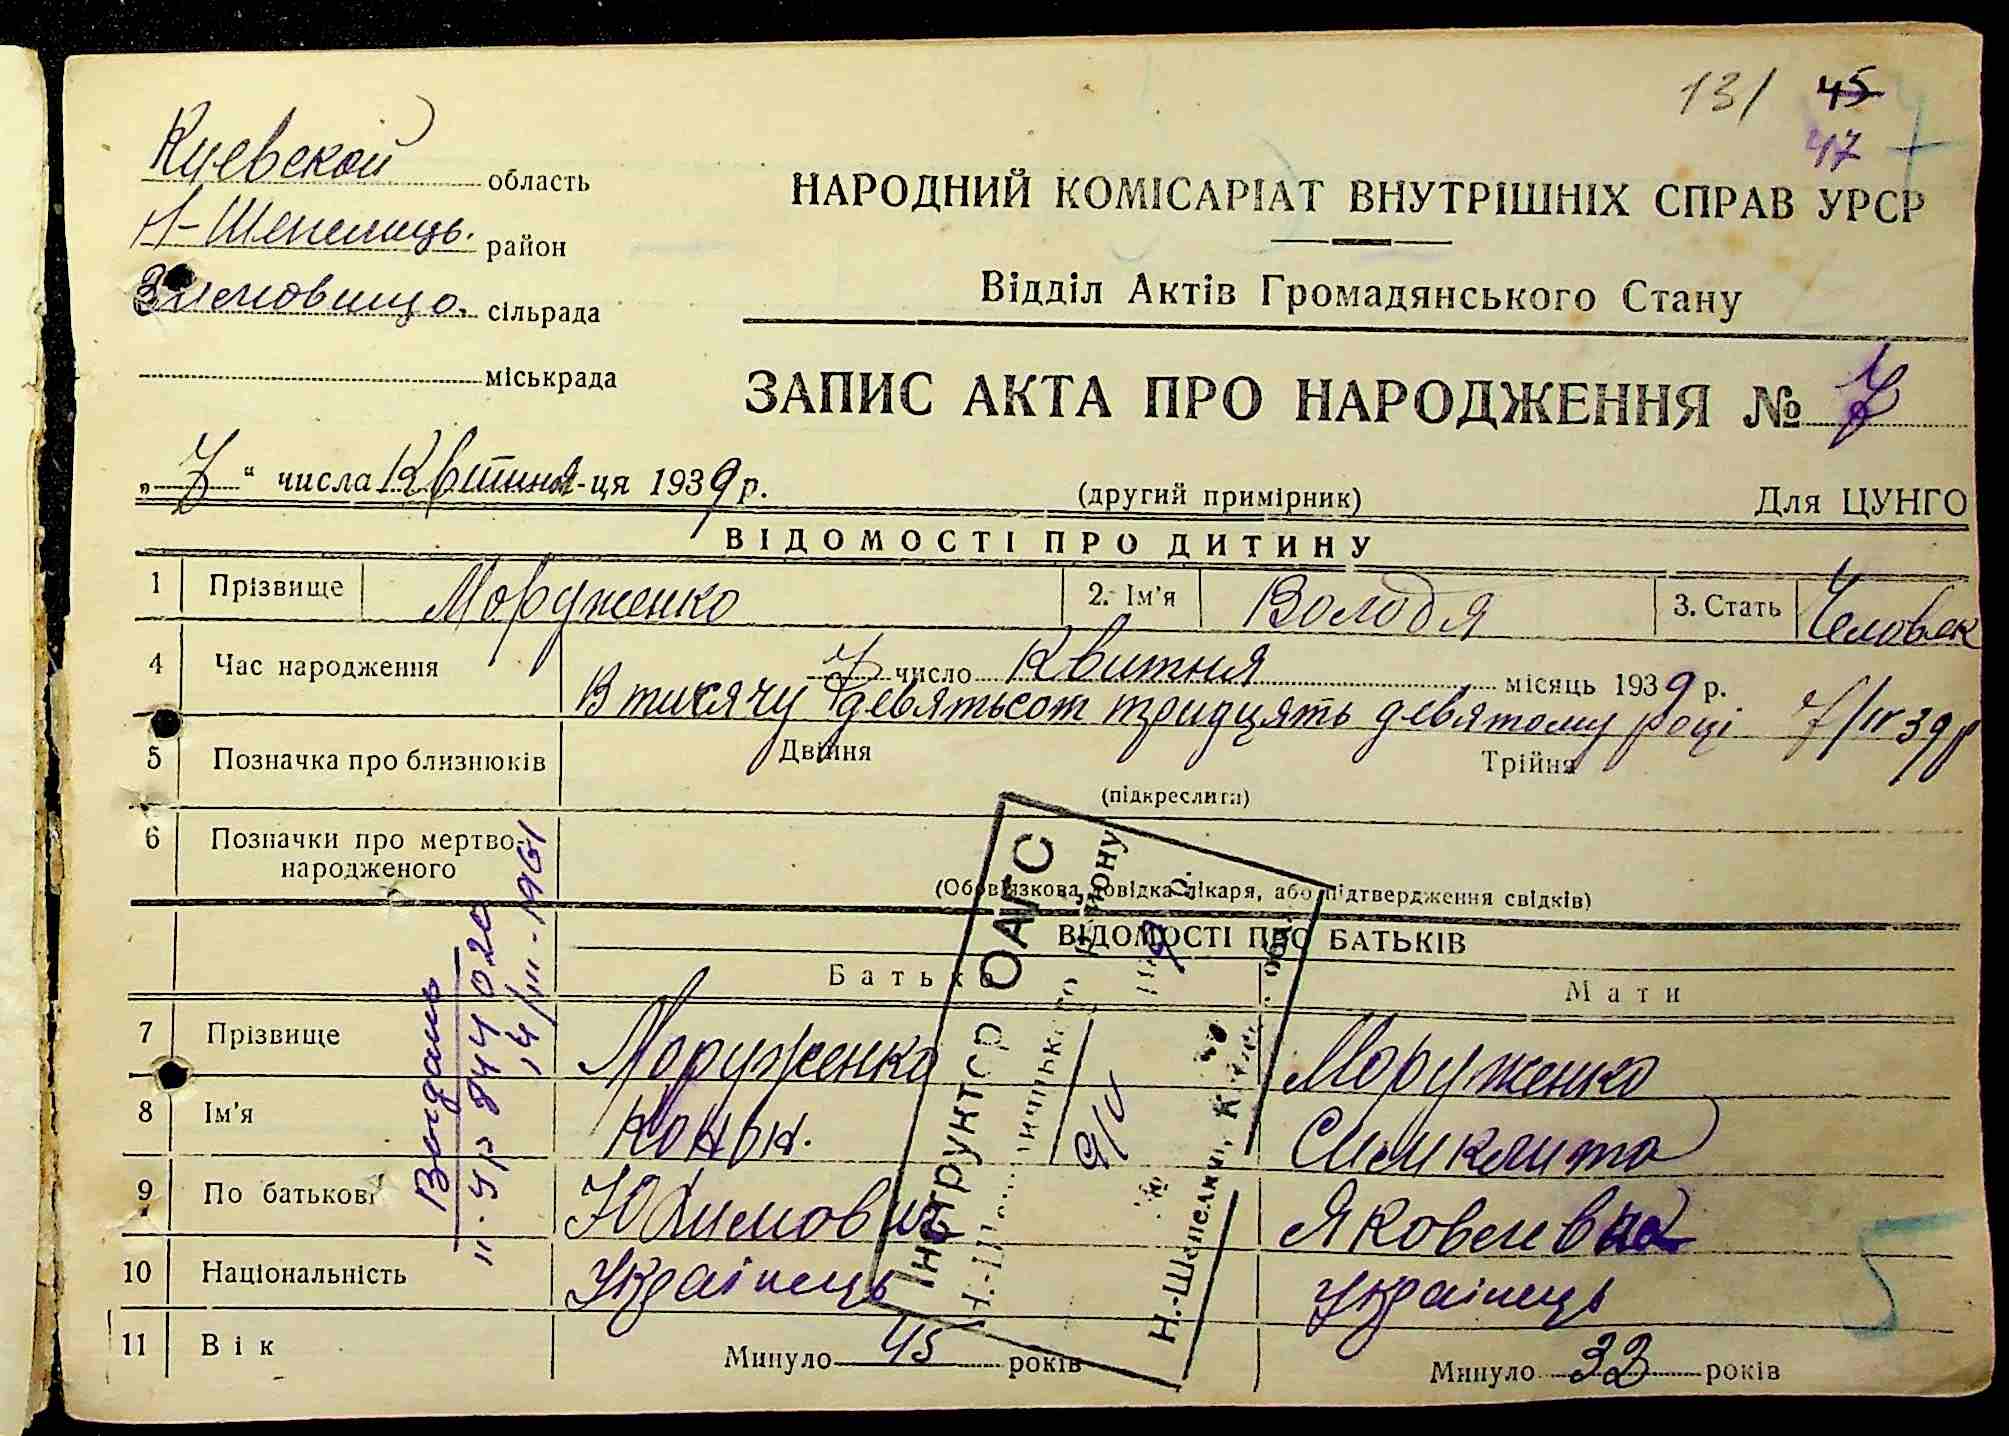 131 45
47
Киевской область
Н-Шепелиць. район
сільрада
міськрада
НАРОДНИЙ КОМІСАРІАТ ВНУТРІШНІХ СПРАВ УРСР
Відділ Актів Громадянського Стану
ЗАПИС АКТА ПРО НАРОДЖЕННЯ № 7
„7“ числа Квитня-ця 1939 р.
(другий примірник) Для ЦУНГО
ВІДОМОСТІ ПРО ДИТИНУ
1 Прізвище Моруженко 2. Ім'я Володя 3. Стать Человек
4 Час народження 7 число Квитня місяць 1939 р.
В тисячу девятьсот тридцять девятому році 7/IV 39 р
5 Позначка про близнюків Двійня Трійня
(підкреслити)
6 Позначки про мертво-
народженого
(Обов'язкова довідка лікаря, або підтвердження свідків)
ВІДОМОСТІ ПРО БАТЬКІВ
Батько Мати
7 Прізвище Моруженко Моруженко
8 Ім'я Конон. Симклита
9 По батькові Юхимович Яковлевна
10 Національність Українець Українець
11 Вік Минуло 45 років Минуло 32 років
II-УР 844020
14/III-1961
Інструктор ОАГС
району
Н.-Шепеличі,
5